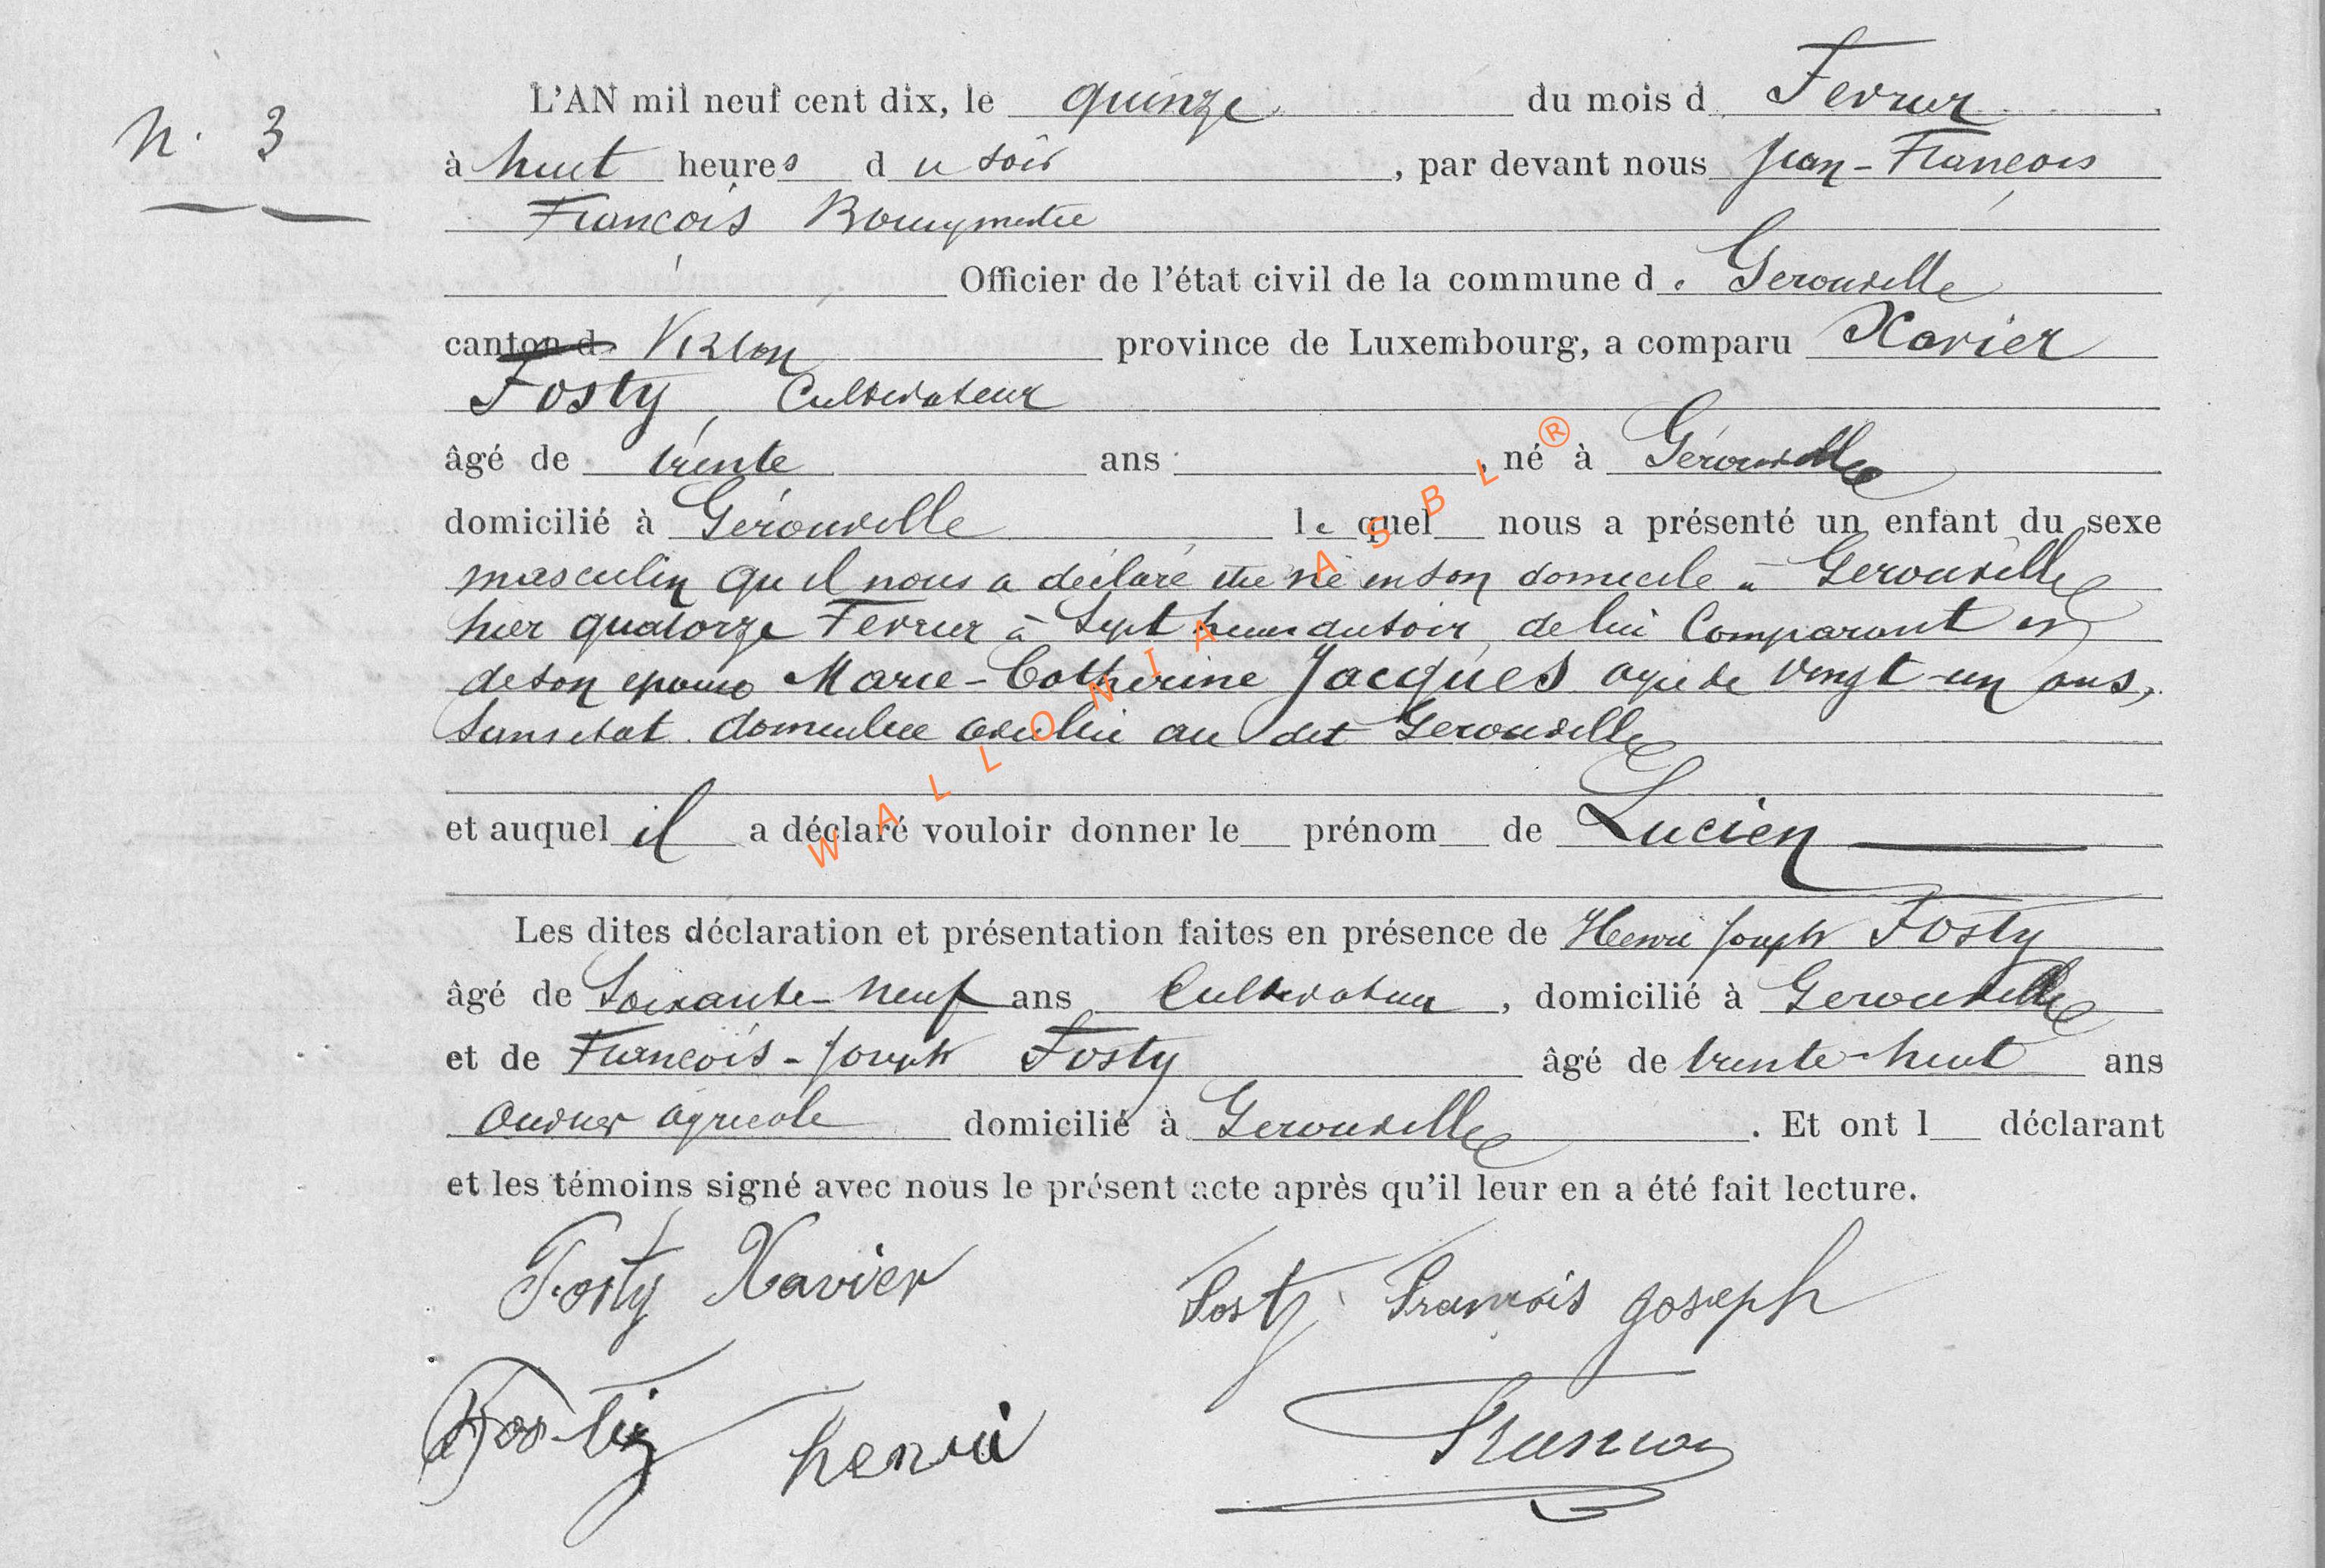 N. 3
L'AN mil neuf cent dix, le quinze du mois d Fevrier
à huit heures du soir, par devant nous Jean-François
François Bourgmestre
Officier de l'état civil de la commune de Gerouville
canton d Virton province de Luxembourg, a comparu Xavier
Fosty, Cultivateur
âgé de trente ans, né à Gérouville
domicilié à Gérouville lequel nous a présenté un enfant du sexe
masculin qu'il nous a déclaré être né en son domicile à Gerouville
hier quatorze Fevrier à Sept heures du soir, de lui Comparant et
de son epouse Marie-Catherine Jacques agée de vingt-un ans,
Sans etat domiciliée avec lui au dit Gerouville
et auquel il a déclaré vouloir donner le prénom de Lucien
Les dites déclaration et présentation faites en présence de Henri Joseph Fosty
âgé de Soixante-neuf ans Cultivateur, domicilié à Gerouville
et de François-Joseph Fosty âgé de trente-huit ans
Ouvrier agricole domicilié à Gerouville. Et ont l déclarant
et les témoins signé avec nous le présent acte après qu'il leur en a été fait lecture.
Fosty Xavier Fosty François Joseph
Fosty henri François
WALLONIA ASBL ®